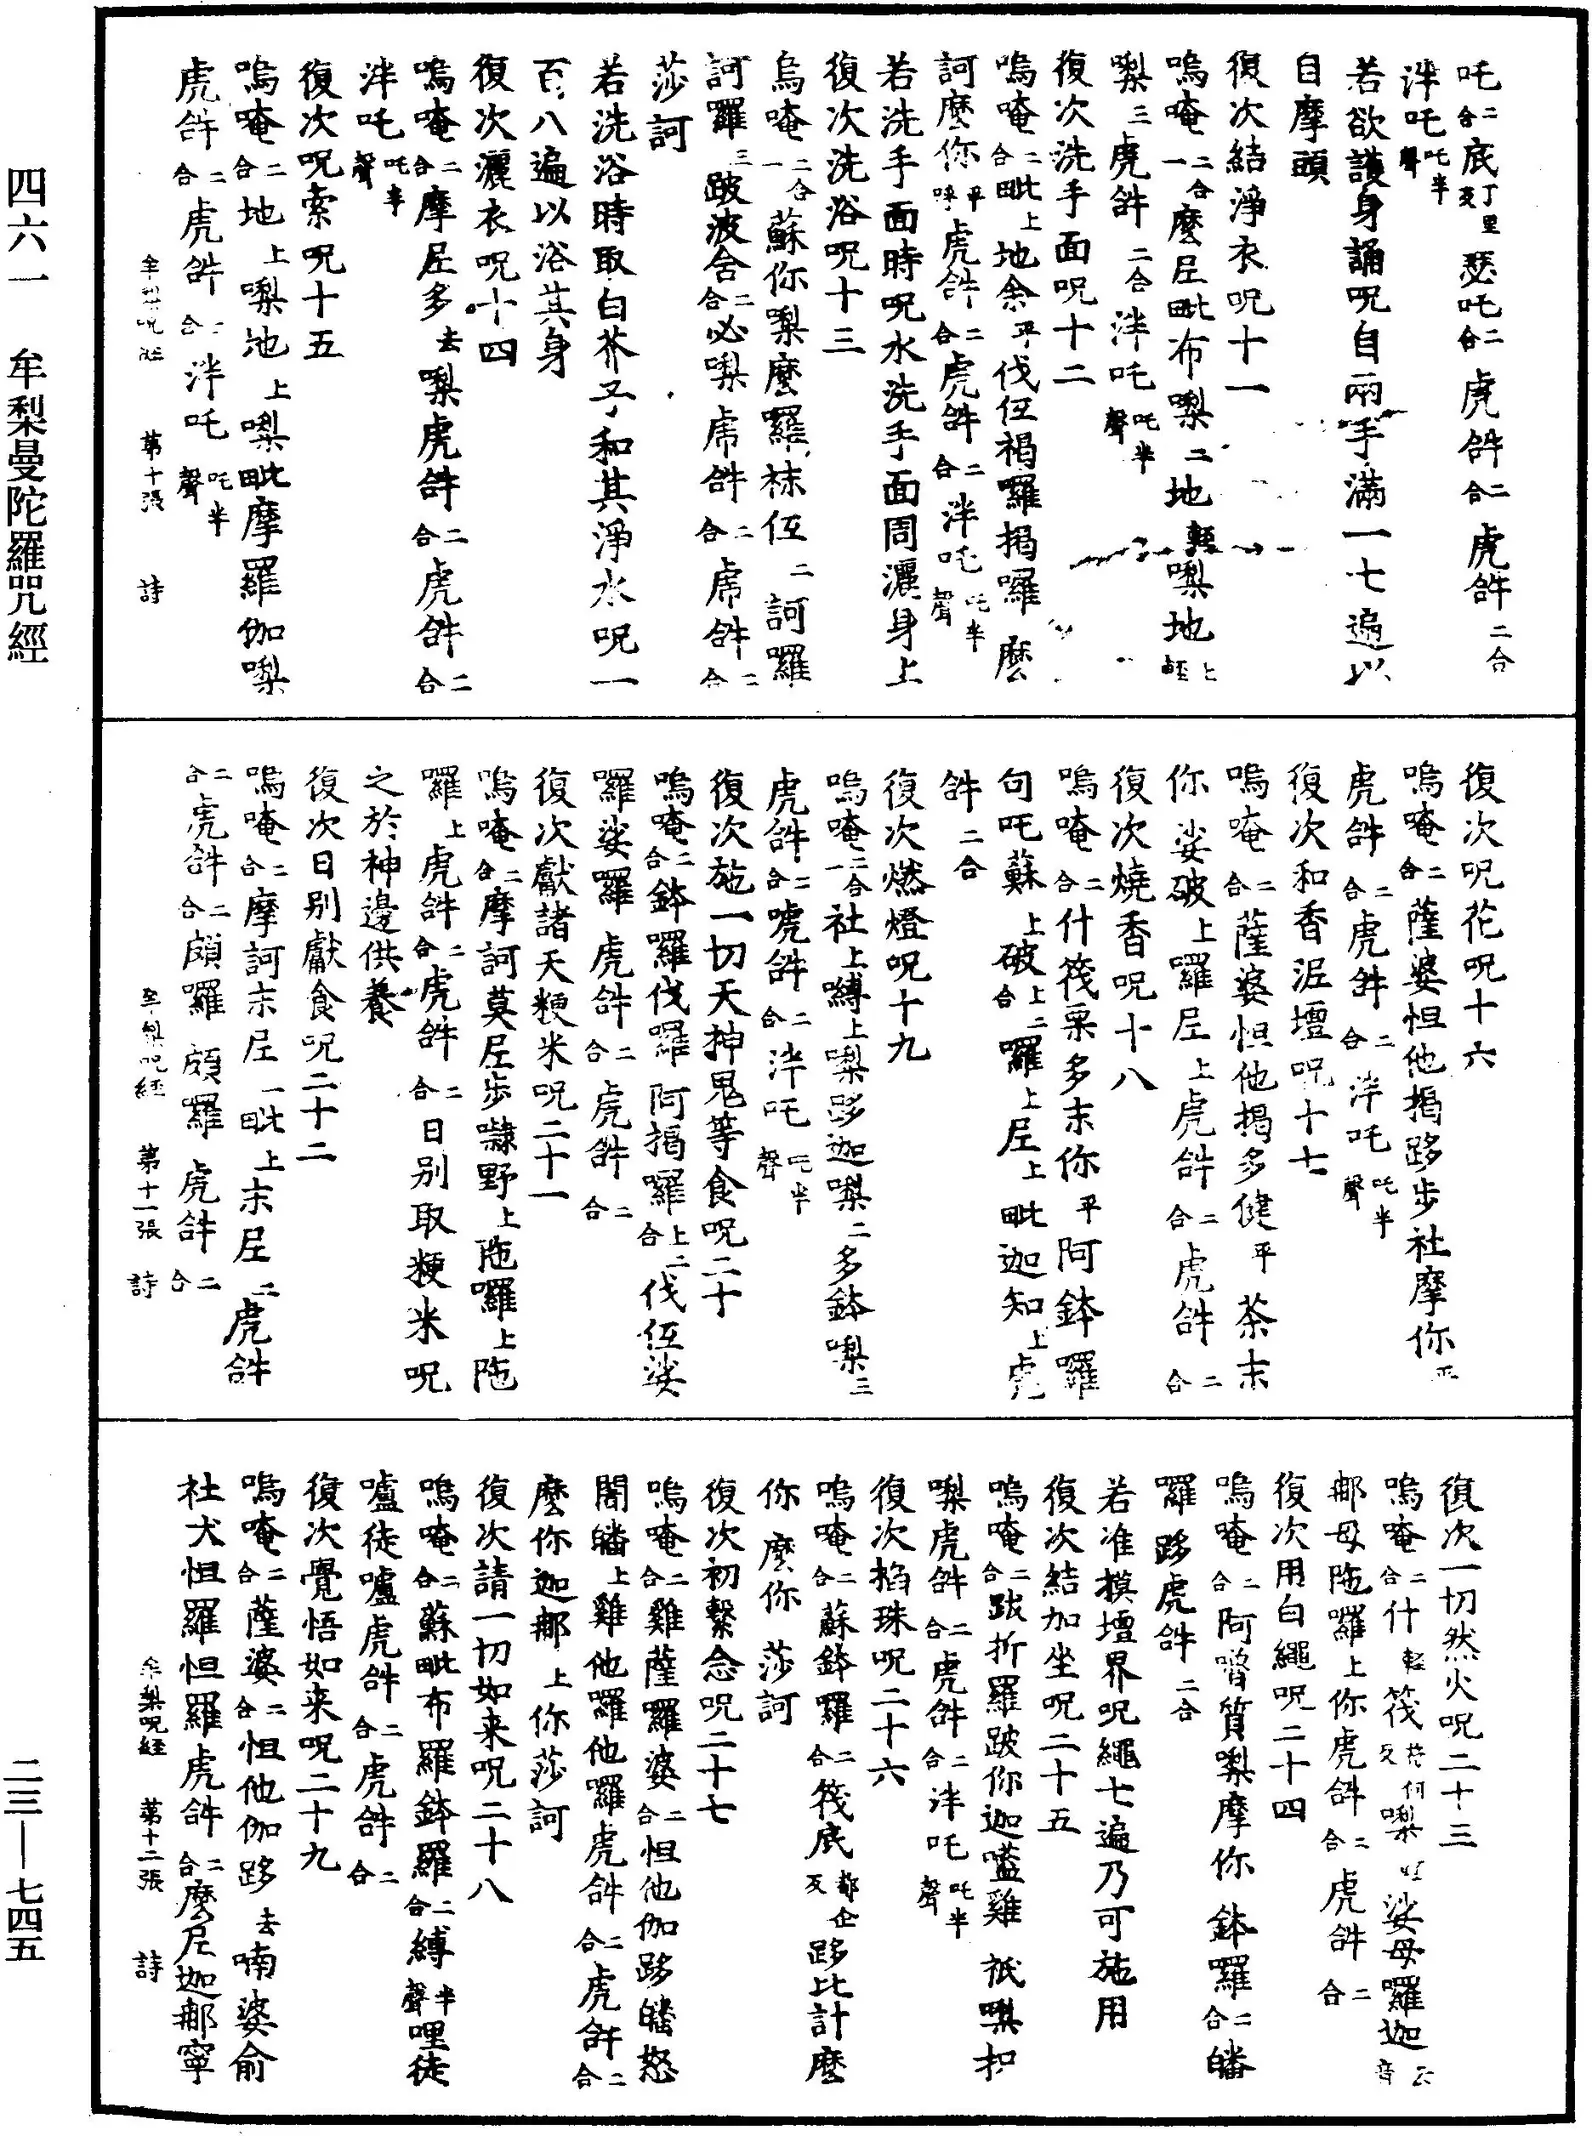 吒二合底丁里反瑟吒二合虎𤙖二合虎𤙖二合
泮吒吒半聲
若欲護身誦呪自兩手滿一七遍以
自摩頭
復次結淨衣呪十一
嗚唵二合一麼𡱝毗布㗚二地輕㗚地上
㗚三虎𤙖二合泮吒吒半聲
復次洗手面呪十二
嗚唵二合毗上地余平伐伍褐囉揭囉麼
訶麼你平呼虎𤙖二合虎𤙖二合泮吒吒半聲
若洗手面時呪水洗手面周灑身上
復次洗浴呪十三
烏唵二合一蘇你㗚麼羅袜伍二訶囉
訶囉三跛波舍二合必㗚虎𤙖二合虎𤙖二合
莎訶
若洗浴時取白芥子和其淨水呪一
百八遍以浴其身
復次灑衣呪十四
嗚唵二合摩𡱝多去㗚虎𤙖二合虎𤙖二合
泮吒吒半聲
復次呪索呪十五
嗚唵二合地上㗚地上㗚毗摩羅伽㗚
虎𤙖二合虎𤙖二合泮吒吒半聲
牟梨呪經 第十張 詩
復次呪花呪十六
嗚唵二合薩婆怛他揭跢步社摩你平
虎𤙖二合虎𤙖二合泮吒吒半聲
復次和香泥壇呪十七
嗚唵二合薩婆怛他揭多健平茶末
你娑破上囉𡱝上虎𤙖二合虎𤙖二合
復次燒香呪十八
嗚唵二合什筏栗多末你平阿鉢囉
句吒蘇上破上二合囉上𡱝上毗迦知上虎
𤙖二合
復次燃燈呪十九
嗚唵二合一社上縛上㗚跢迦㗚二多鉢㗚三
虎𤙖二合唬𤙖二合泮吒吒半聲
復次施一切天神鬼等食呪二十
嗚唵二合鉢羅伐羅阿揭囉上二合伐伍娑
羅娑羅虎𤙖二合虎𤙖二合
復次獻諸天粳米呪二十一
嗚唵二合摩訶莫𡱝步㘑野上陁囉上陁
羅上虎𤙖二合虎𤙖二合日別取粳米呪
之於神邊供養
復次日別獻食呪二十二
嗚唵二合摩訶末𡱝一毗上末𡱝二虎𤙖
二合虎𤙖二合頗羅頗羅虎𤙖二合
牟梨呪經 第十一張 詩
復次一切然火呪二十三
嗚唵二合什輕筏符何反㗚娑母羅迦去音
郁母陁囉上你虎𤙖二合虎𤙖二合
復次用白繩呪二十四
嗚唵二合阿㗶質㗚摩你鉢羅二合皤
羅跢虎𤙖二合
若准摸壇界呪繩七遍乃可施用
復次結加坐呪二十五
嗚唵二合跋折羅跛你迦㗐雞祇㗚扣
㗚虎𤙖二合虎𤙖二合泮吒吒半聲
復次掐珠呪二十六
嗚唵二合蘇鉢羅二合筏底都企反跢比計麼
你麼你莎訶
復次初繫念呪二十七
嗚唵二合雞薩囉婆二合怛他伽跢皤怒
闍皤上雞他囉他囉虎𤙖二合虎𤙖二合
麼你迦郁上你莎訶
復次請一切如来呪二十八
嗚唵二合蘇毗布羅鉢羅二合縛半聲哩徒
嚧徒嚧虎𤙖二合虎𤙖二合
復次覺悟如来呪二十九
嗚唵二合薩婆二合怛他伽跢去喃婆俞
社犬怛羅怛羅虎𤙖二合麼𡱝迦郁寧
牟梨呪經 第十二張 詩
四六一 牟梨曼陀羅咒經
二三—七四五